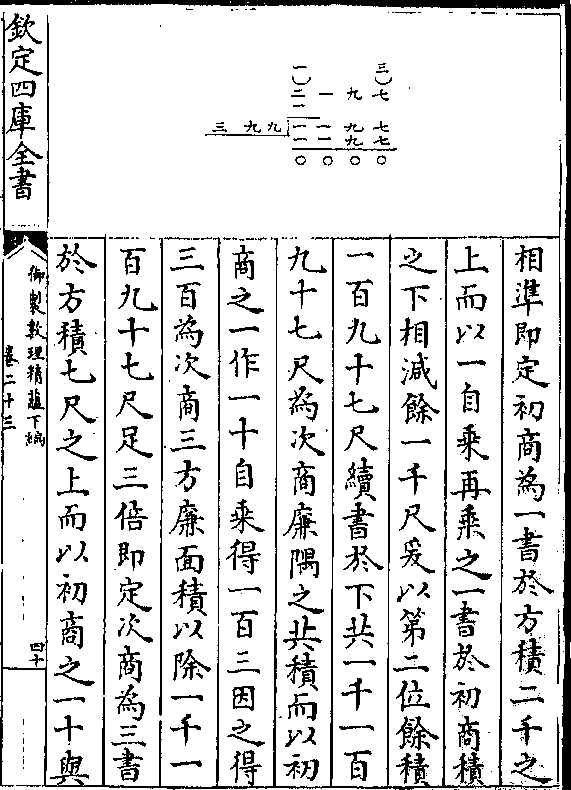 一　三
二一九七
一
三九九　一一九七
一一九七
〇〇〇〇
相準即定初商為一書於方積二千之
上而以一自乗再乗之一書於初商積
之下相減餘一千尺爰以第二位餘積
一百九十七尺續書於下共一千一百
九十七尺為次商廉隅之共積而以初
商之一作一十自乗得一百三因之得
三百為次商三方廉面積以除一千一
百九十七尺足三倍即定次商為三書
於方積七尺之上而以初商之一十與
欽定四庫全書
御製數理精蘊下編
卷二十三
四十